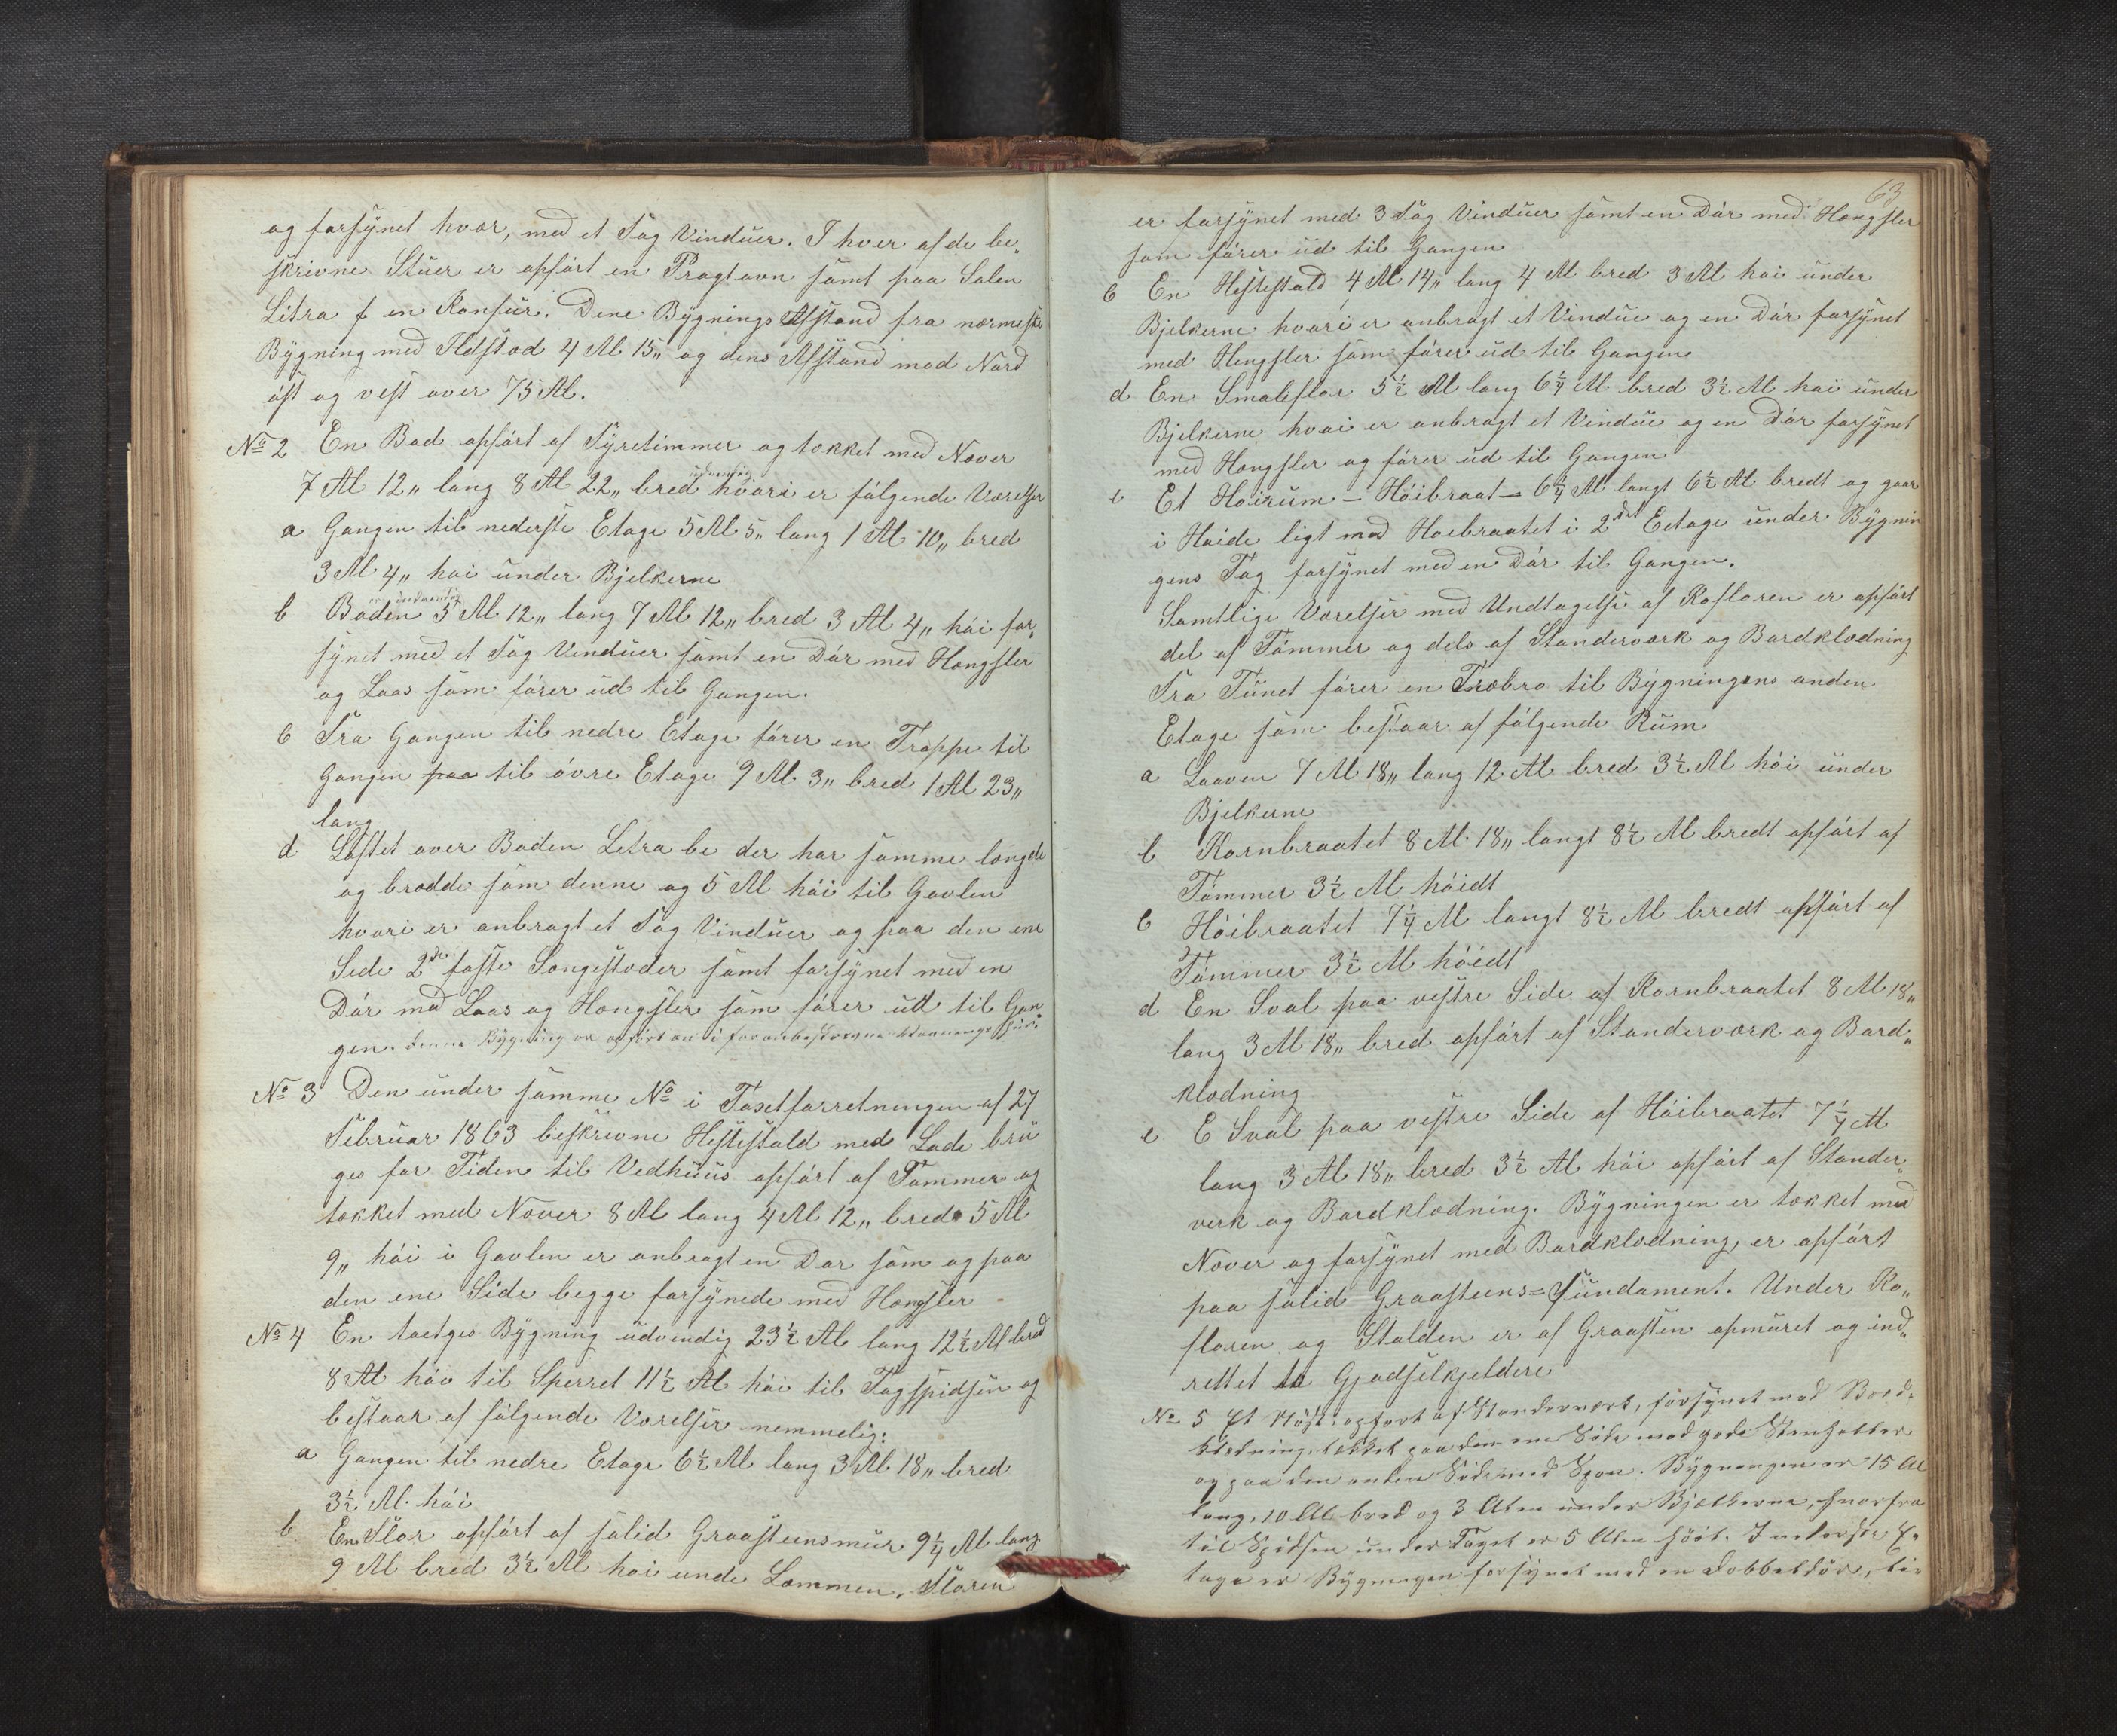 og forsynet hver, med et Fag Vinduer. I hver af de be„
skrevne Stuer er opført en Pragtovn samt paa Salen
Litra f en Konfur. Dene Bygnings Afstand fra nærmeste
Bygning med Ildstæd 4 Al 15„ og dens Afstand mod Nord
øst og vest over 75 Al.
No 2 En Bod opført af Fyretimmer og tækket med Næver
7 Al 12„ lang 8 Al 22„ bred udvendig hvori er følgende Værelser
a Gangen til nederste Etage 5 Al 5„ lang 1 Al 10„ bred
3 Al 4„ høi under Bjelkerne
b Boden er indvendig 5 Al 12„ lang 7 Al 12„ bred 3 Al 4„ høi for„
synet med et Fag Vinduer samt en Dør med Hængsler
og Laas som fører ud til Gangen.
c Fra Gangen til nedre Etage fører en Trappe til
Gangen paa til øvre Etage 9 Al 3„ bred 1 Al 23„
lang
d Loftet over Boden Litra be der har samme længde
og brædde som denne og 5 Al høi til Gavlen
hvori er anbragt et Fag Vinduer og paa den ene
Side 2de faste Sengestæder samt forsynet med en
Dør med Laas og Hængsler som fører ud til Gan„
gen. denne Bygning er opført av i foranbeskrevne
No 3 Den under samme No i Taxtforretningen af 27
Februar 1863 beskrevne Hestestald med Lade bru
ges for Tiden til Vedhuus opført af Tømmer og
tækket med Næver 8 Al lang 4 Al 12„ bred 5 Al
9„ høi i Gavlen er anbragt en Dør som og paa
den ene Side begge forsynede med Hængsler
No 4 En toetges Bygning udvendig 23½ Al lang 12½ Al bred
8 Al høi til Sperret 11½ Al høi til Tagspidsen og
bestaar af følgende Værelser nemmelig:
a Gangen til nedre Etage 6½ Al lang 3 Al 18„ bred
3½ Al høi
b En Flor opført af solid Graasteensmur 9¼ Al lang
9 Al bred 3½ Al høi unde Lemmen. Floren
63
er forsynet med 3 Fag Vinduer samt en Dør med Hængsler
som fører ud til Gangen
c En Hestestald 4 Al 14„ lang 4 Al bred 3 Al høi under
Bjelkerne hvori er anbragt et Vindue og en Dør forsynet
med Hengsler som fører ud til Gangen
d En Smaleflor 5½ Al lang 6¼ Al bred 3½ Al høi under
Bjelkerne hvoi er anbragt et Vindue og en Dør forsynet
med Hængsler og fører ud til Gangen
e Et Høirum – Høibraat – 6¼ Al langt 6½ Al bredt og gaar
i Høide ligt med Høebraatet i 2det Eetage under Bygnin
gens Tag forsynet med en Dør til Gangen.
Samtlige Værelser med Undtagelse af Kofloren er opført
del af Tømmer og dels af Standerværk og Bordklædning
Fra Tunet fører en Træbro til Bygningens anden
Etage som bestaar af følgende Rum
a Laaven 7 Al 18„ lang 12 Al bred 3½ Al høi under
Bjelkerne
b Kornbraatet 8 Al 18„ langt 8½ Al bredt opført af
Tømmer 3½ Al høidt
c Høibraatet 7¼ Al langt 8½ Al bredt opført af
Tømmer 3½ Al høidt
d En Sval paa vestre Side af Kornbraatet 8 Al 18„
lang 3 Al 18„ bred opført af Standerværk og Bord„
klædning
e E Sval paa vestre Side af Høibraatet 7¼ Al
lang 3 Al 18„ bred 3½ Al høi opført af Stander„
verk og Bordklædning. Bygningen er tækket med
Næver og forsynet med Bordklædning, er opført
paa solid Graasteens=Fundament. Under Ko„
floren og Stalden er af Graasten opmuret og ind„
rettet to Gjødselkjeldere
No 5 Et Nøst: opført af Standerværk, forsynet med Bord-
klædning. tækket paa den ene Side med gode Stenheller
og paa den anden Side med Spon. Bygningen er 15 Al
lang, 10 Al bred og 3 Alen under Bjælkerne, hvorfra
til Spidsen under Taget er 5 Alen höit. I nederste E-
tage er Bygningen forsynet med en dobbeltdör, til